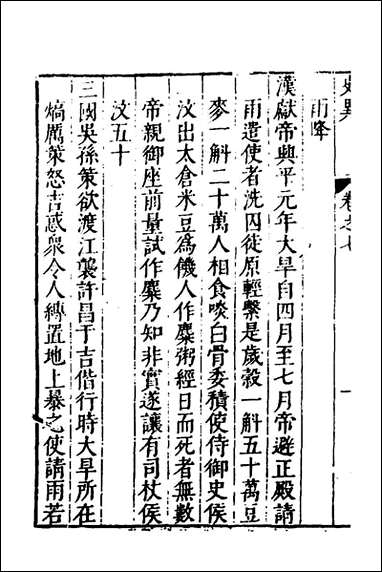 史異　卷之七　一
雨降
漢獻帝興平元年大旱自四月至七月帝避正殿請
雨遣使者洗囚徒原輕繫是歲穀一斛五十萬豆
麥一斛二十萬人相食啖白骨委積使侍御史侯
汶出太倉米豆為饑人作麋粥經日而死者無數
帝親御座前量試作麋乃知非實遂讓有司杖侯
汶五十
三國吳孫策欲渡江襲許昌于吉偕行時大旱所在
熇厲策怒吉惑衆令人縛置地上暴之使請雨若